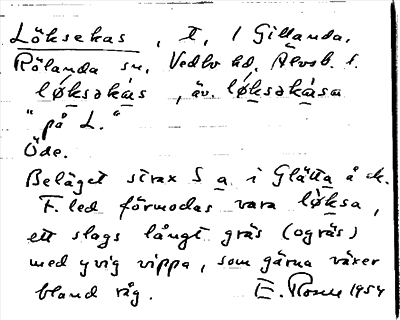 Löksekas, t, i Gillanda,
Rölanda sn, Vedbo hd, Älvsb. l.
lø̀ksəkás, äv. lø̀ksəkása
"på L."
Öde.
Beläget strax S a i Glätta å ek.
F. led förmodas vara lø̀ksa,
ett slags långt gräs (ogräs)
med yvig vippa, som gärna växer
bland råg. E. Rosell 1954